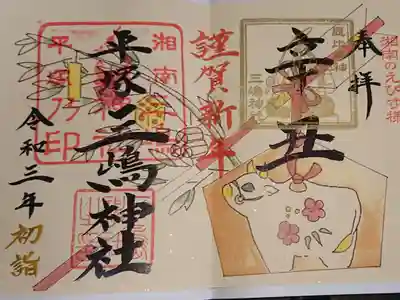 湘南のえびす様
奉拝
辛丑
三嶋神
謹賀新年
平塚三嶋神社
湘南
平塚
平塚乃印
令和三年
初詣